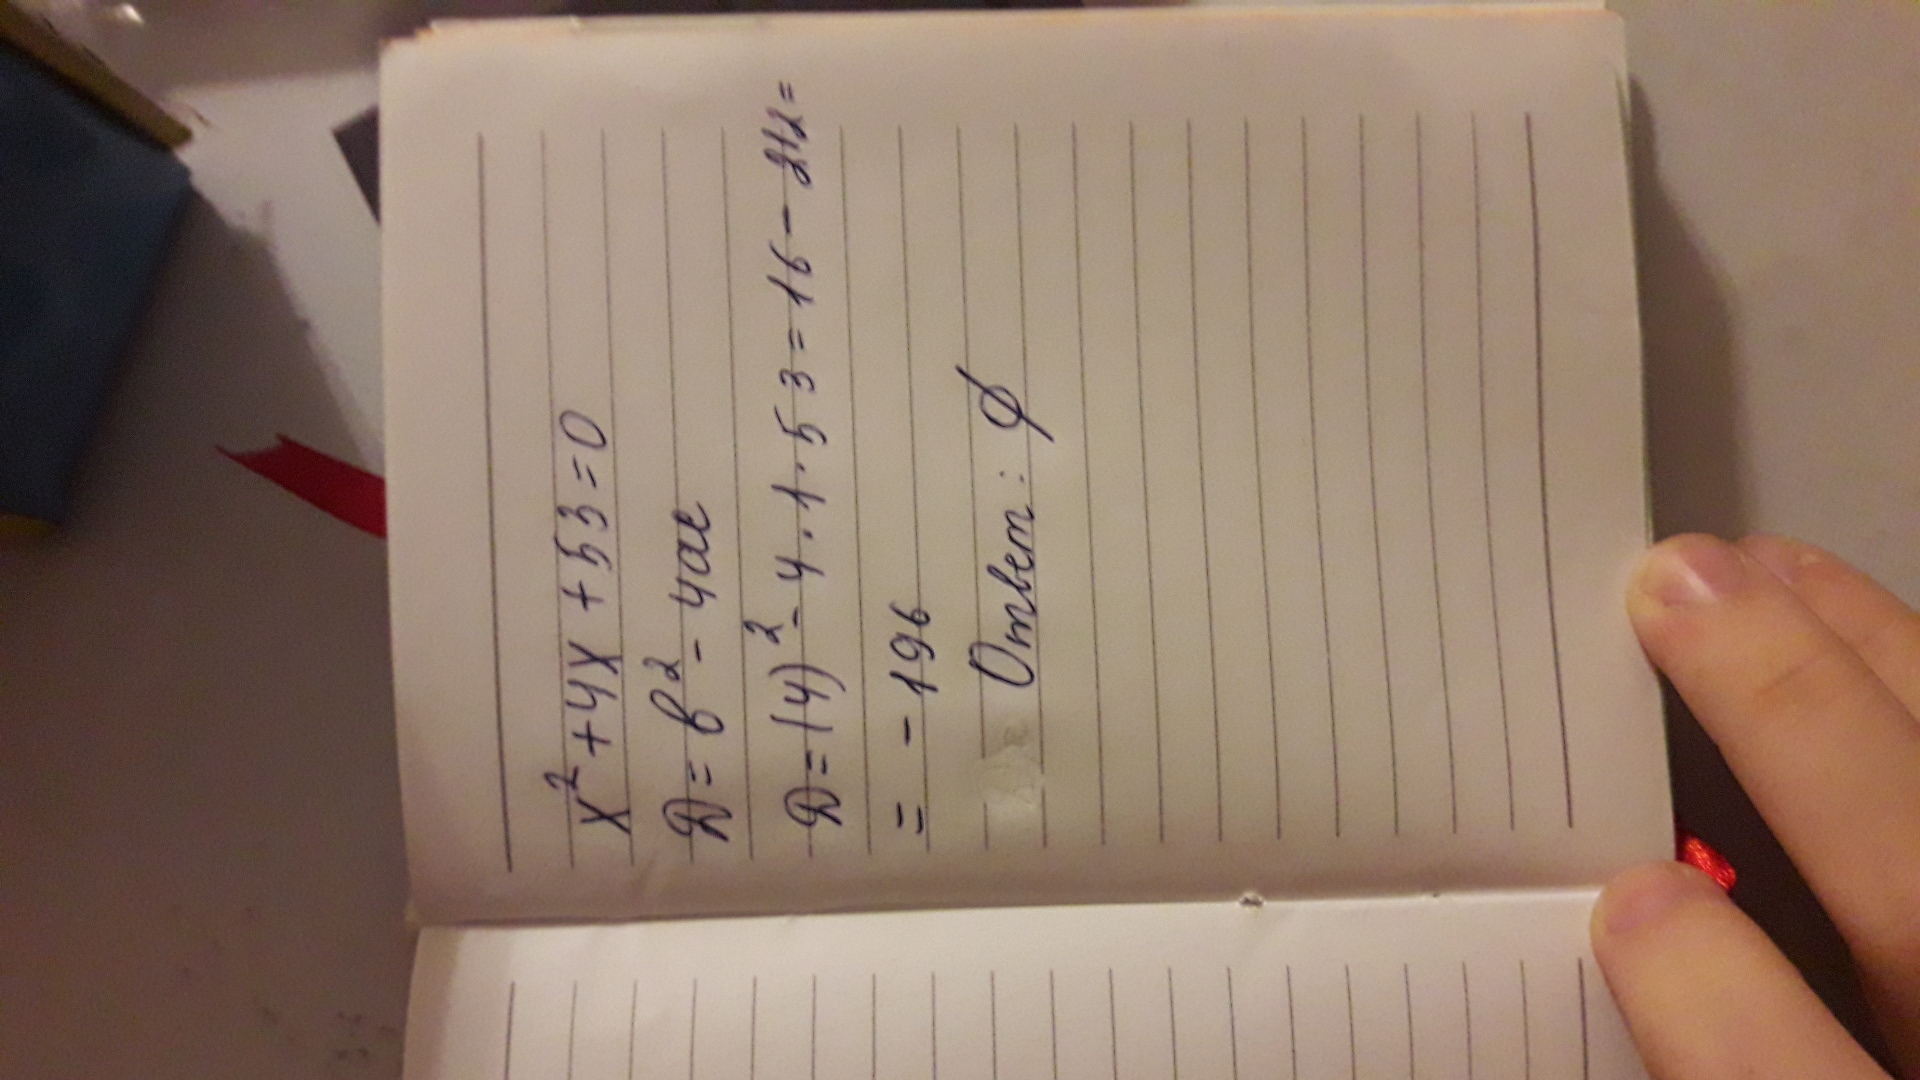 x² + 4x + 53 = 0
D = b² - 4ac
D = (4)² - 4 · 1 · 53 = 16 - 212 =
= - 196
Ответ: ∅